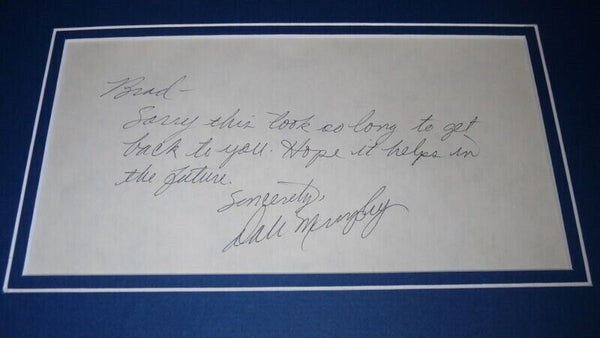 Brad-
Sorry this took so long to get
back to you. Hope it helps in
the future.
Sincerely,
Dale Murphy